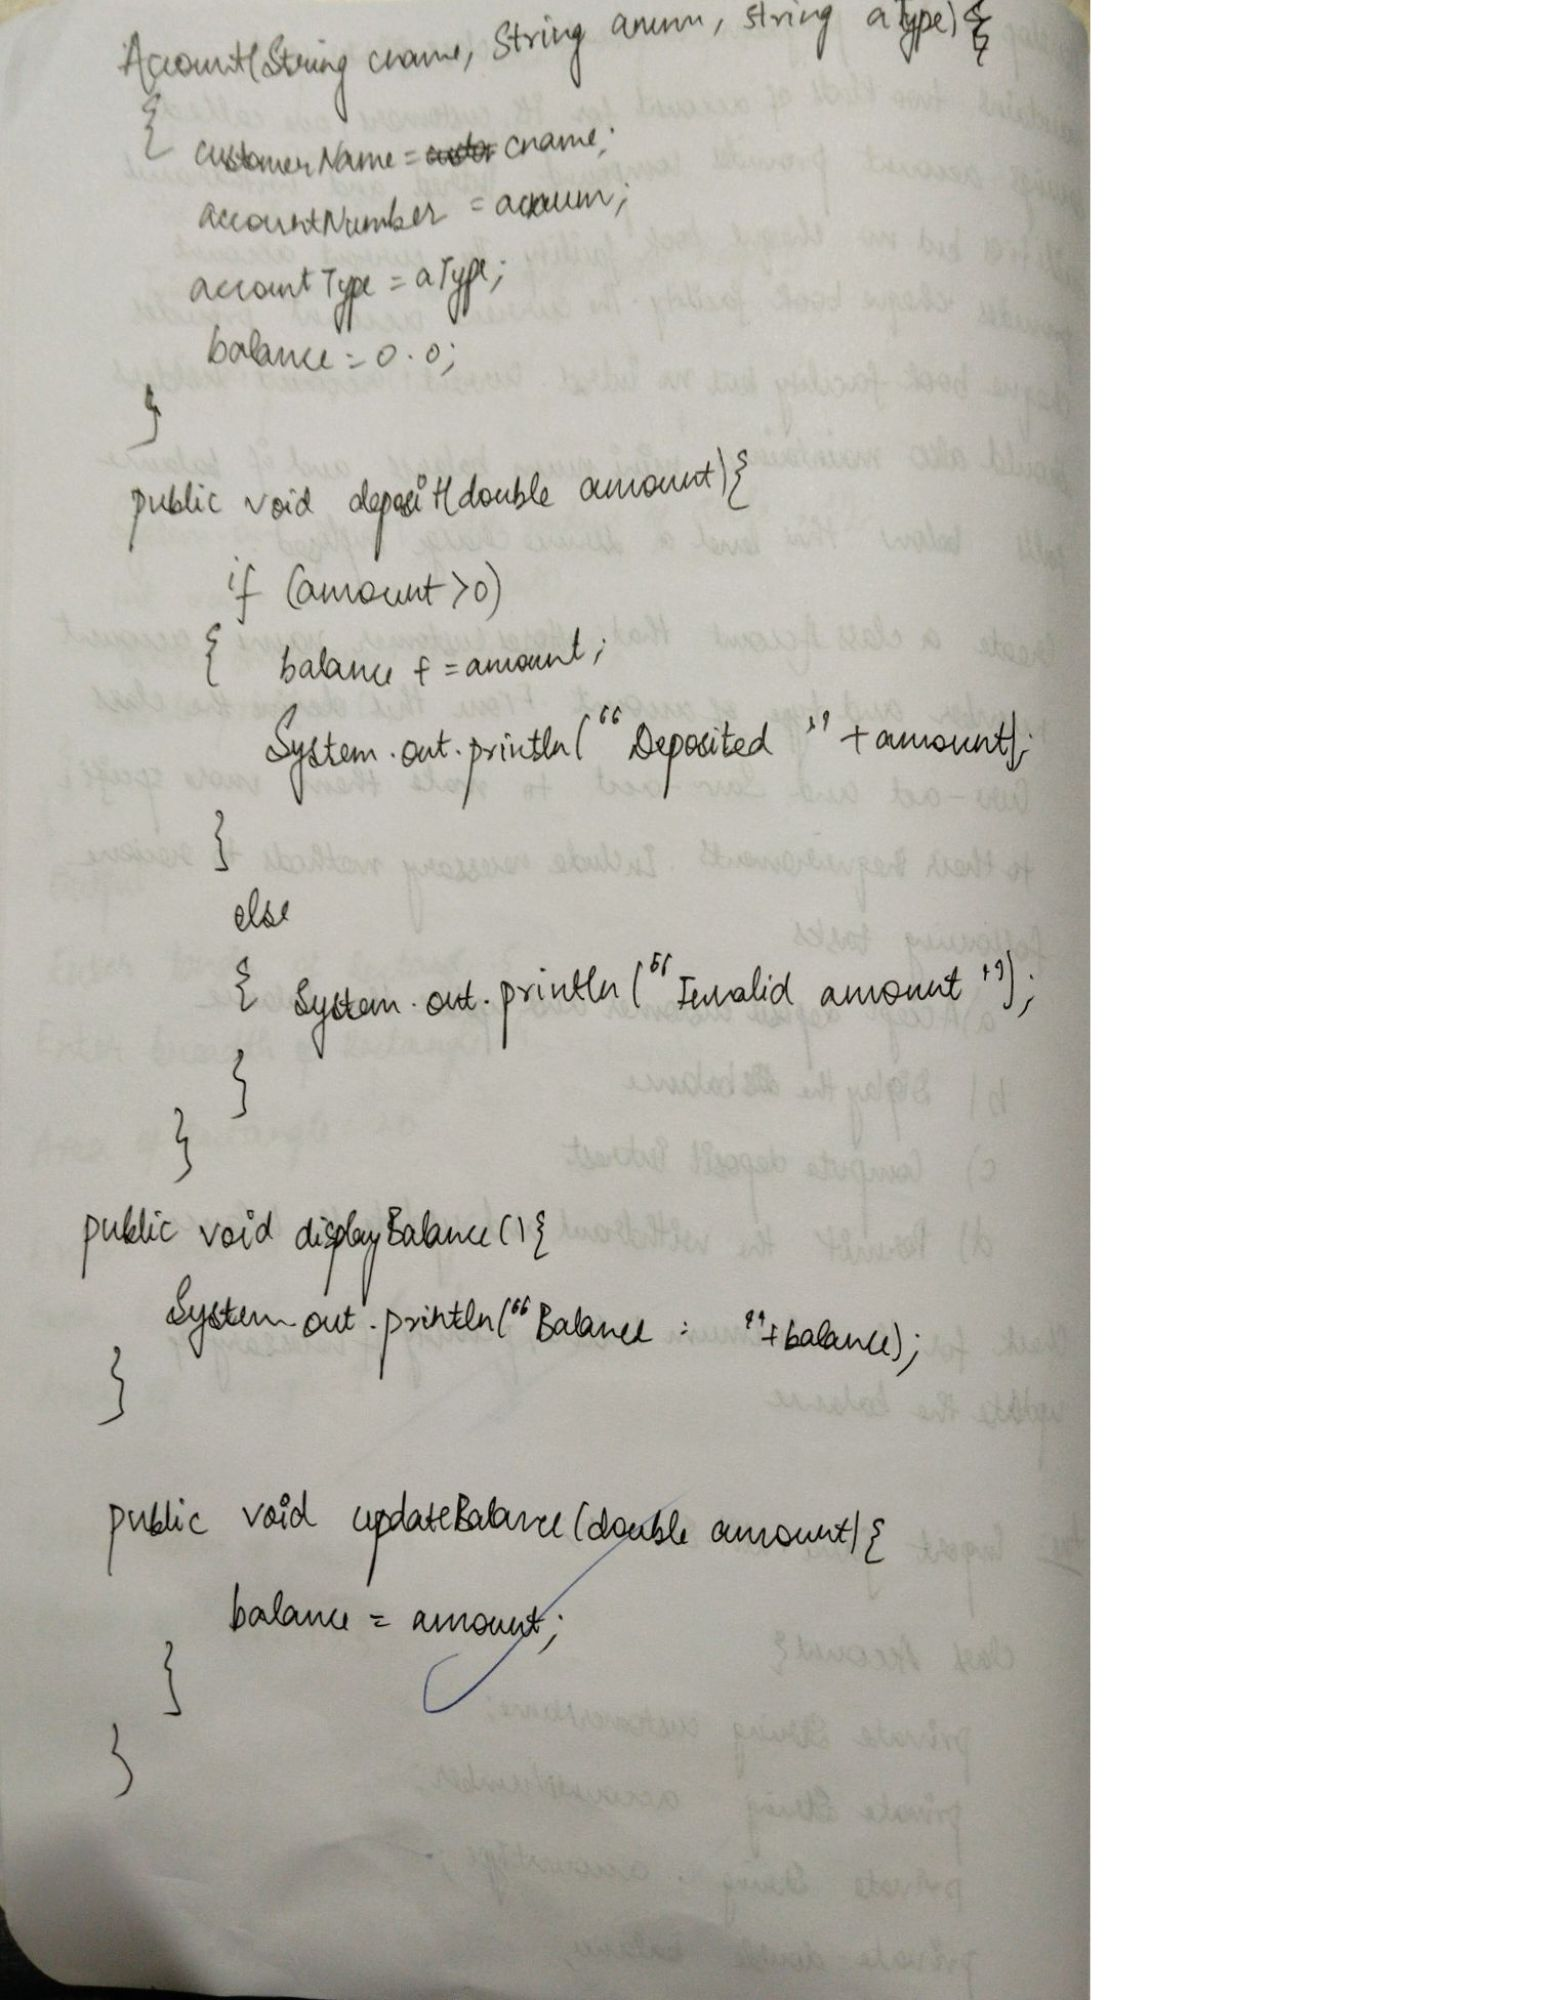 Account(String cname, String anum, string aType) {
{ customerName = cname;
accountNumber = acnum;
accountType = aType;
balance = 0.0;
}
public void deposit(double amount){
if (amount>0)
{ balance += amount;
System.out.println("Deposited "+amount);
}
else
{ System.out.println("Invalid amount");
}
}
public void displayBalance(){
System.out.println("Balance : "+balance);
}
public void updateBalance(double amount){
balance = amount;
}
}